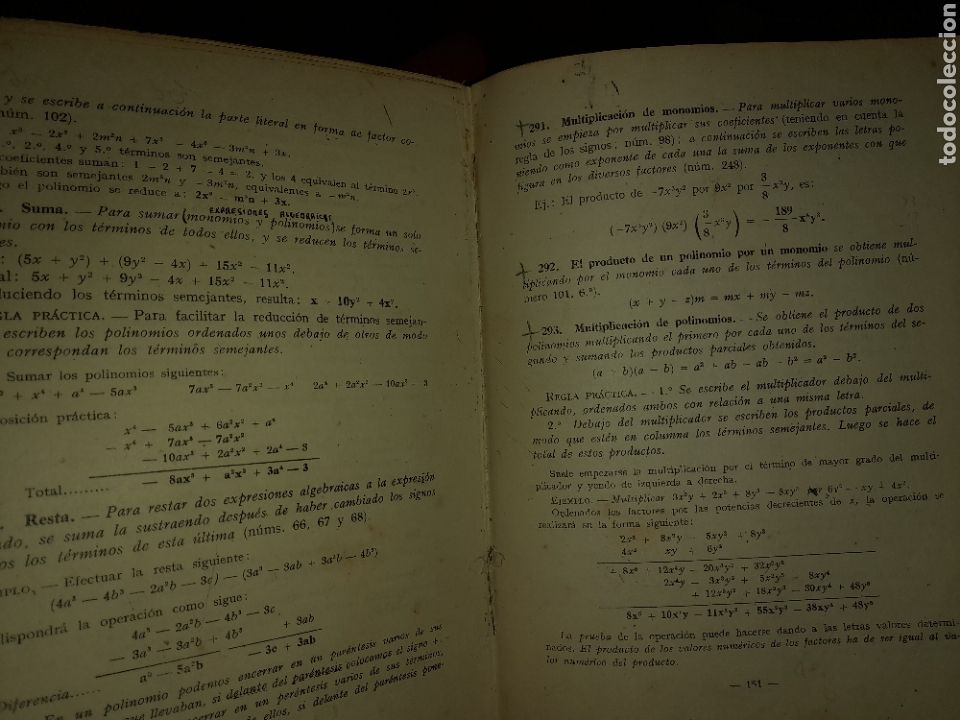 y se escribe a continuación la parte literal en forma de factor co-
núm. 102).
x³ — 2x² + 2m²n + 7x² — 4x² — 3m²n + 3x.
2.º, 4.º y 5.º términos son semejantes.
coeficientes suman: 1 — 2 + 7 — 4 = 2, y los 4 equivalen al término 2x².
bién son semejantes 2m²n y — 3m²n, equivalentes a — m²n.
go el polinomio se reduce a: 2x² — m²n + 3x.
EXPRESIONES ALGEBRAICAS
Suma. — Para sumar (monomios y polinomios) se forma un solo
mio con los términos de todos ellos, y se reducen los términos se-
es.
: (5x + y²) + (9y² — 4x) + 15x² — 11x².
al: 5x + y² + 9y² — 4x + 15x² — 11x².
duciendo los términos semejantes, resulta: x + 10y² + 4x².
GLA PRÁCTICA. — Para facilitar la reducción de términos semejan-
escriben los polinomios ordenados unos debajo de otros de modo
correspondan los términos semejantes.
Sumar los polinomios siguientes:
+ x⁴ + a⁴ — 5ax³ 7ax³ — 7a²x² — x⁴ 2a⁴ + 2a²x² — 10ax³ — 3
posición práctica:
x⁴ — 5ax³ + 6a²x² + a⁴
— x⁴ + 7ax³ — 7a²x²
— 10ax³ + 2a²x² + 2a⁴ — 3
Total......... — 8ax³ + a²x² + 3a⁴ — 3
Resta. — Para restar dos expresiones algebraicas a la expresión
ado, se suma la sustraendo después de haber cambiado los signos
os los términos de esta última (núms. 66, 67 y 68).
MPLO. — Efectuar la resta siguiente:
(4a³ — 4b³ — 2a²b — 3c) — (3a³ — 3ab + 3a²b — 4b³)
dispondrá la operación como sigue:
4a³ — 2a²b — 4b³ — 3c
— 3a³ — 3a²b + 4b³ + 3ab
Diferencia...... a³ — 5a²b — 3c + 3ab
En un polinomio podemos encerrar en un paréntesis varios de sus
que llevaban, si delante del paréntesis colocamos el signo +.
encerrar en un paréntesis varios de sus términos,
de ellos, si delante del paréntesis pone-
291. Multiplicación de monomios. — Para multiplicar varios mono-
mios se empieza por multiplicar sus coeficientes (teniendo en cuenta la
regla de los signos; núm. 98); a continuación se escriben las letras po-
niendo como exponente de cada una la suma de los exponentes con que
figura en los diversos factores (núm. 248).
Ej.: El producto de -7x³y² por 9x² por 3/8 x²y, es:
(-7x³y²) (9x²) (3/8 x²y) = - 189/8 x⁷y³.
292. El producto de un polinomio por un monomio se obtiene mul-
tiplicando por el monomio cada uno de los términos del polinomio (nú-
mero 101, 6.º).
(x + y — z)m = mx + my — mz.
293. Multiplicación de polinomios. — Se obtiene el producto de dos
polinomios multiplicando el primero por cada uno de los términos del se-
gundo y sumando los productos parciales obtenidos.
(a + b)(a — b) = a² + ab — ab — b² = a² — b².
REGLA PRÁCTICA. — 1.º Se escribe el multiplicador debajo del multi-
plicando, ordenados ambos con relación a una misma letra.
2.º Debajo del multiplicador se escriben los productos parciales, de
modo que estén en columna los términos semejantes. Luego se hace el
total de estos productos.
Suele empezarse la multiplicación por el término de mayor grado del multi-
plicador y yendo de izquierda a derecha.
EJEMPLO. — Multiplicar 3x²y + 2x³ + 8y³ — 5xy² por 6y² — xy + 4x².
Ordenados los factores por las potencias decrecientes de x, la operación se
realizará en la forma siguiente:
2x³ + 3x²y — 5xy² + 8y³
4x² xy + 6y²
+ 8x⁵ + 12x⁴y — 20x³y² + 32x²y³
2x⁴y — 3x³y² + 5x²y³ — 8xy⁴
+ 12x³y² + 18x²y³ — 30xy⁴ + 48y⁵
8x⁵ + 10x⁴y — 11x³y² + 55x²y³ — 38xy⁴ + 48y⁵
La prueba de la operación puede hacerse dando a las letras valores determi-
nados. El producto de los valores numéricos de los factores ha de ser igual al va-
lor numérico del producto.
— 151 —
todocoleccion